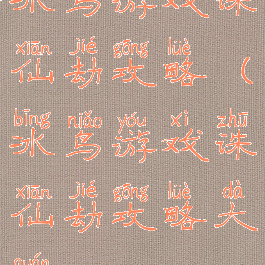 冰鸟游戏诛
xiān jié gōng lüè
仙劫攻略（
bīng niǎo yóu xì zhū
冰鸟游戏诛
xiān jié gōng lüè dà
仙劫攻略大